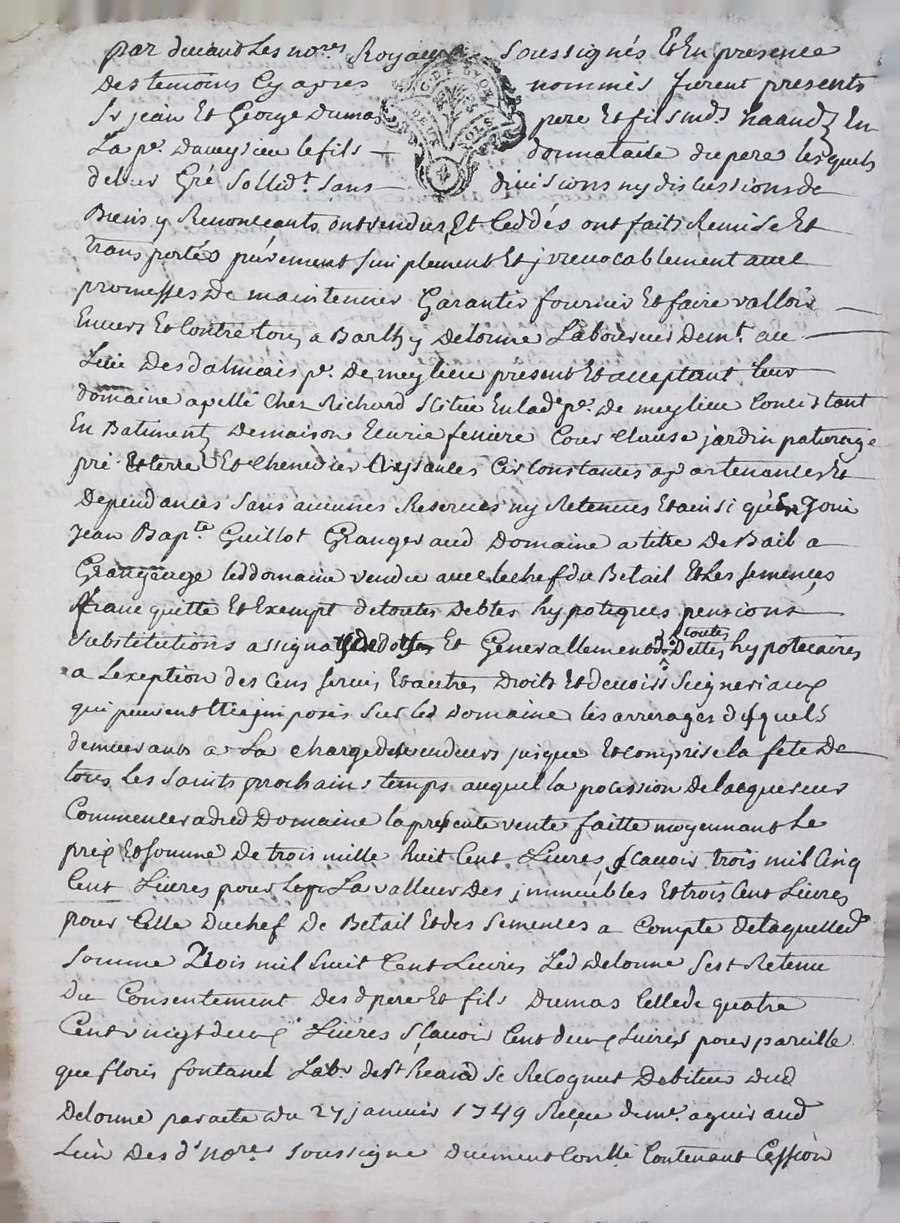 par devand Les no.res Royaux soussignés Et En presence
Des temoins Cy apres nommés furent presents
Sr jean Et George Dumas pere Et fils md.s En
La p.e le fils donnataire du pere lesquels
de leur Gré Sollid.t Sans divisions ny discussions de
Biens y Renonceants, ont vendus, Et Ceddés ont faits Remise Et
transportés purement simplement Et jrrevocablement avec
promesses De maintenir Garantir fournir Et faire valloir
Envers Et Contre tous a Barth.y Delorme Laboureur Dem.t au
Lieu Des dalmais p.e De meylieu present Et acceptant leur
domaine apellé Chez Richard Scitué En lad.e p.e De meylieu Concistant
En Batiments De maison Ecurie feniere Cour Clause jardin paturage
pré Et terre Et Chenevier Aysances Circonstances apartenances Et
Dependances Sans aucunes Reserves ny Retenues Et ainsi qu'En Joui
Jean Bap.te Guillot Granger aud Domaine a titre De Bail a
Grangeage led domaine vendu avec le chef du Betail Et Les semences
franc quitte Et Exempt de toutes Debtes hypoteques pensions
Substitutions Et Generallement de toutes Dettes hypotecaires
a Lexeption des Cens servis Et autres Droits Et devoirs Seigneriaux
qui peuvent Etre jmposés Sur led Domaine les arrerages desquels
demeurants a La charge des vendeurs jusque Et comprise la fete De
tous Les Saints prochains temps auquel la pocession De lacquereur
Commencera dud Domaine la presente vente faitte moyennant Le
prix Et somme De trois mille huit Cent Livres, scavoir trois mil Cinq
Cent Livres pour La valleur Des jmmeubles Et trois Cent Livres
pour Celle Du chef De Betail Et des Semences a Compte de laquelle d
Somme Trois mil huit Cent Livres Led Delorme S'est Retenu
Du Consentement Des d pere Et fils Dumas Celle de quatre
Cent vingt deux Livres scavoir Cent deux Livres pour pareille
que floris fontanel Lab.r de St heand Se Recognut Debiteur Dud
Delorme par acte du 27 janvier 1749 Reçue de m.e aguiraud
Lun Des d.s no.res soussigne Duement Conllé Contenant Cession